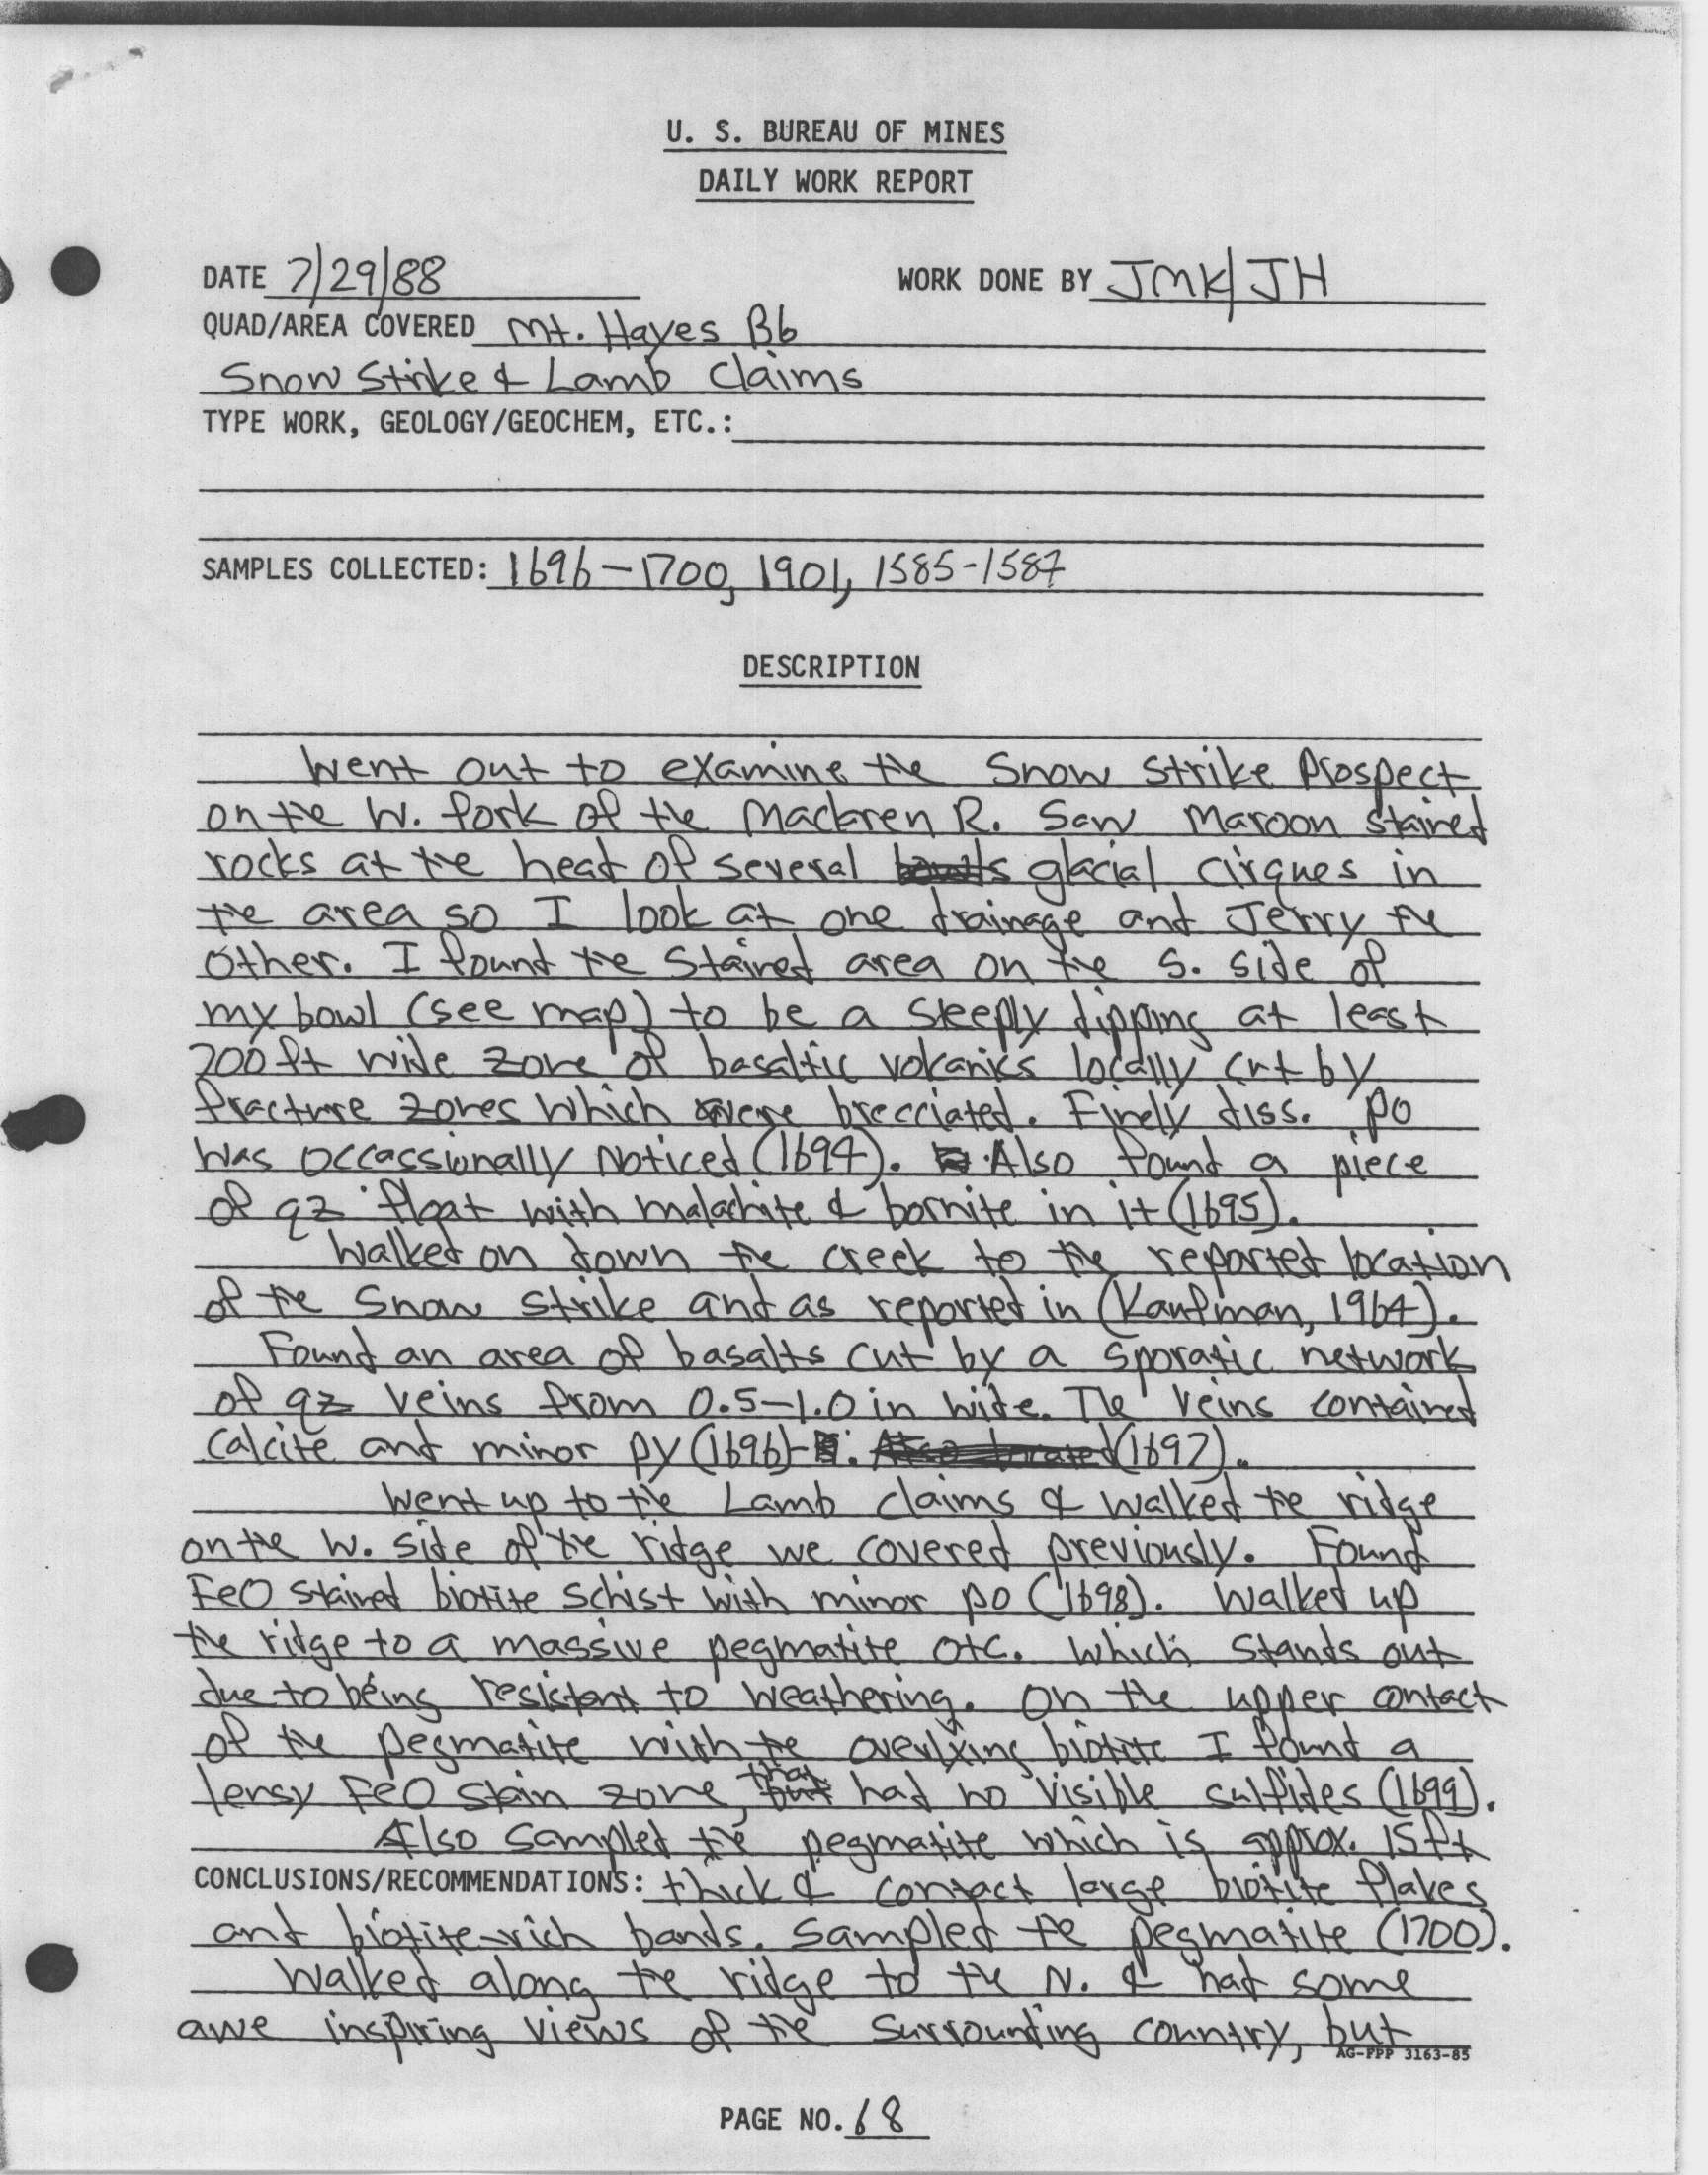 U. S. BUREAU OF MINES
DAILY WORK REPORT
DATE 7/29/88 WORK DONE BY JMK/JH
QUAD/AREA COVERED Mt. Hayes B6
Snow Strike & Lamb Claims
TYPE WORK, GEOLOGY/GEOCHEM, ETC.:
SAMPLES COLLECTED: 1696-1700, 1901, 1585-1587
DESCRIPTION
Went out to examine the Snow Strike Prospect
on the W. fork of the Maclaren R. Saw Maroon stained
rocks at the head of several glacial cirques in
the area so I look at one drainage and Jerry the
other. I found the stained area on the S. side of
my bowl (see map) to be a steeply dipping at least
200 ft wide zone of basaltic volcanics locally cut by
fracture zones which were brecciated. Finely diss. po
was occassionally noticed (1694). Also found a piece
of qz float with malachite & bornite in it (1695).
Walked on down the creek to the reported location
of the Snow Strike and as reported in (Kaufman, 1964).
Found an area of basalts cut by a sporatic network
of qz veins from 0.5-1.0 in wide. The veins contained
calcite and minor py (1696)- (1697).
Went up to the Lamb claims & walked the ridge
on the W. side of the ridge we covered previously. Found
FeO stained biotite schist with minor po (1698). Walked up
the ridge to a massive pegmatite otc. which stands out
due to being resistant to weathering. On the upper contact
of the pegmatite with the overlying biotite I found a
lensy FeO stain zone, that had no visible sulfides (1699).
Also sampled the pegmatite which is approx. 15 ft
CONCLUSIONS/RECOMMENDATIONS: thick & contact large biotite flakes
and biotite-rich bands. Sampled the pegmatite (1700).
Walked along the ridge to the N. & had some
awe inspiring views of the surrounding country, but
AG-FPP 3163-85
PAGE NO. 68